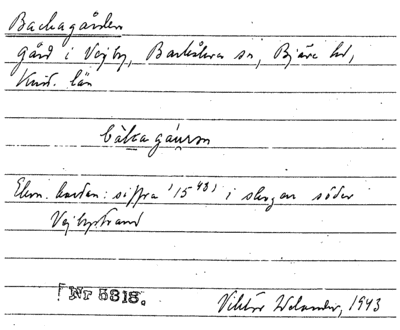 Backagården
gård i Vejby, Barkåkra sn, Bjäre hd,
Krist. län
bàkagáuren
Ekon. kartan: siffra '15⁴⁸' i skogen söder
Vejbystrand
Nr 5818.
Viktor Welander, 1943